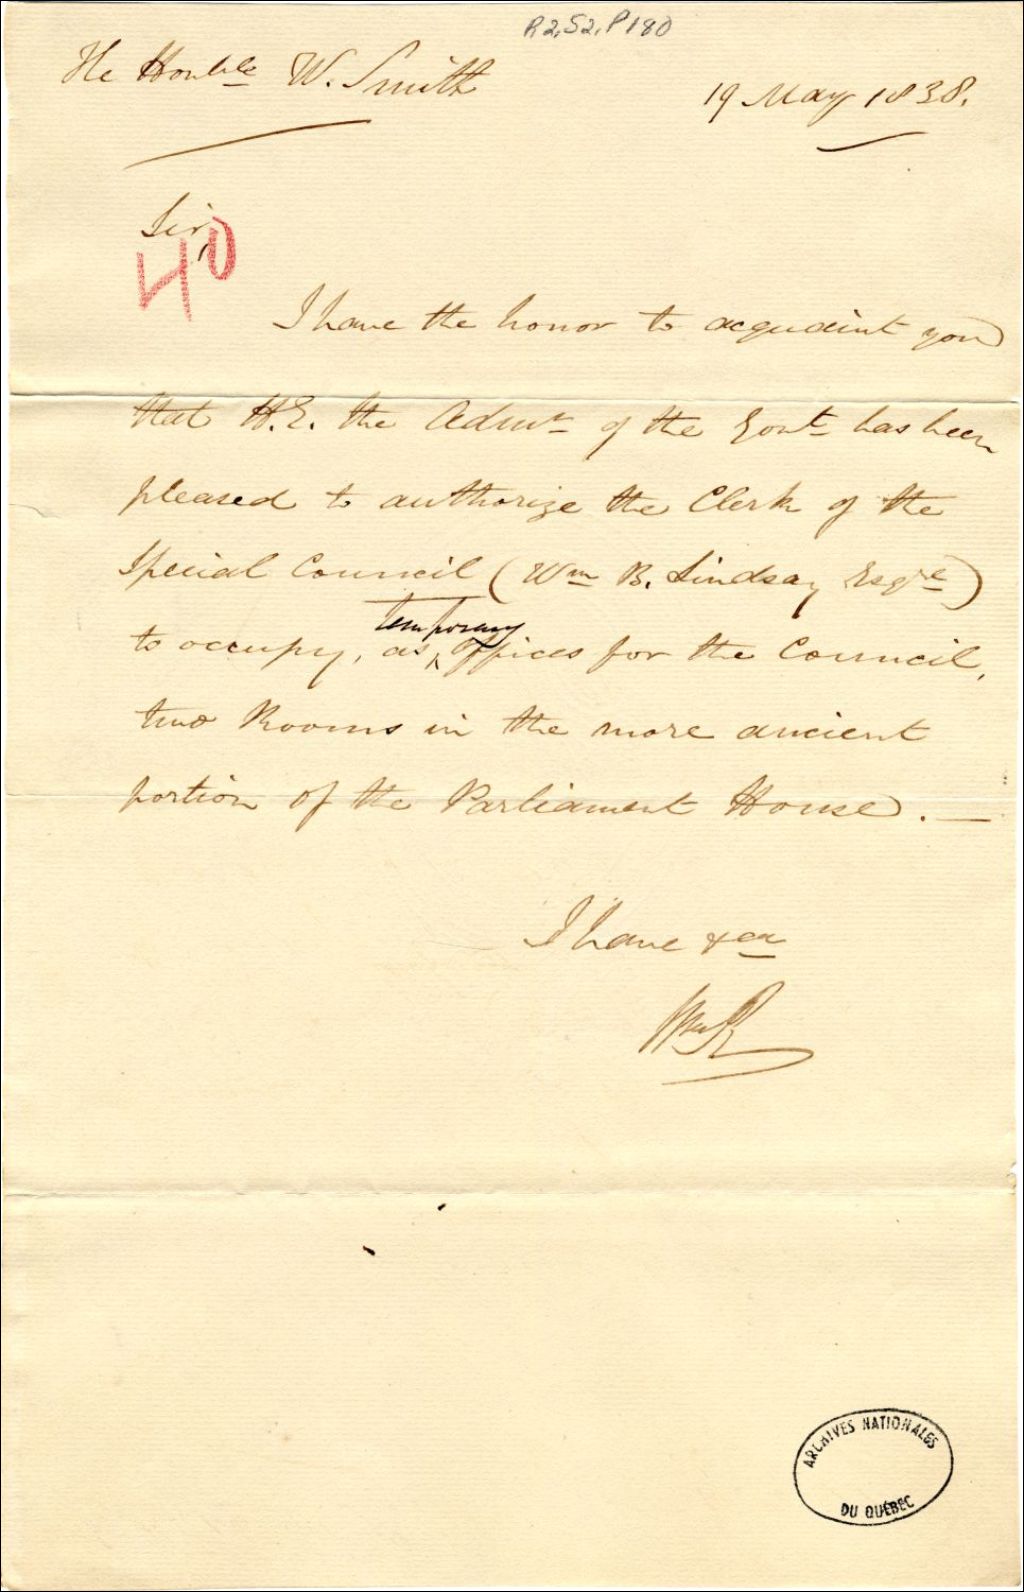 R2,S2,P180
The Honble W. Smith
19 May 1838.
Sir,
40
I have the honor to acquaint you
that H.E. the Admr of the Govt has been
pleased to authorize the Clerk of the
Special Council (Wm B. Lindsay Esqre)
temporary
to occupy, as Offices for the Council,
two Rooms in the more ancient
portion of the Parliament House. —
I have &ca
ARCHIVES NATIONALES
DU QUÉBEC